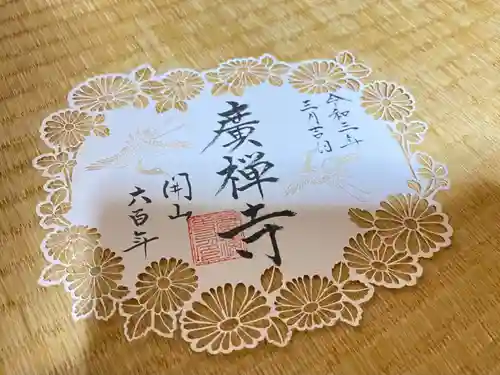 令和三年
三月吉日
廣禅寺
開山
六百年